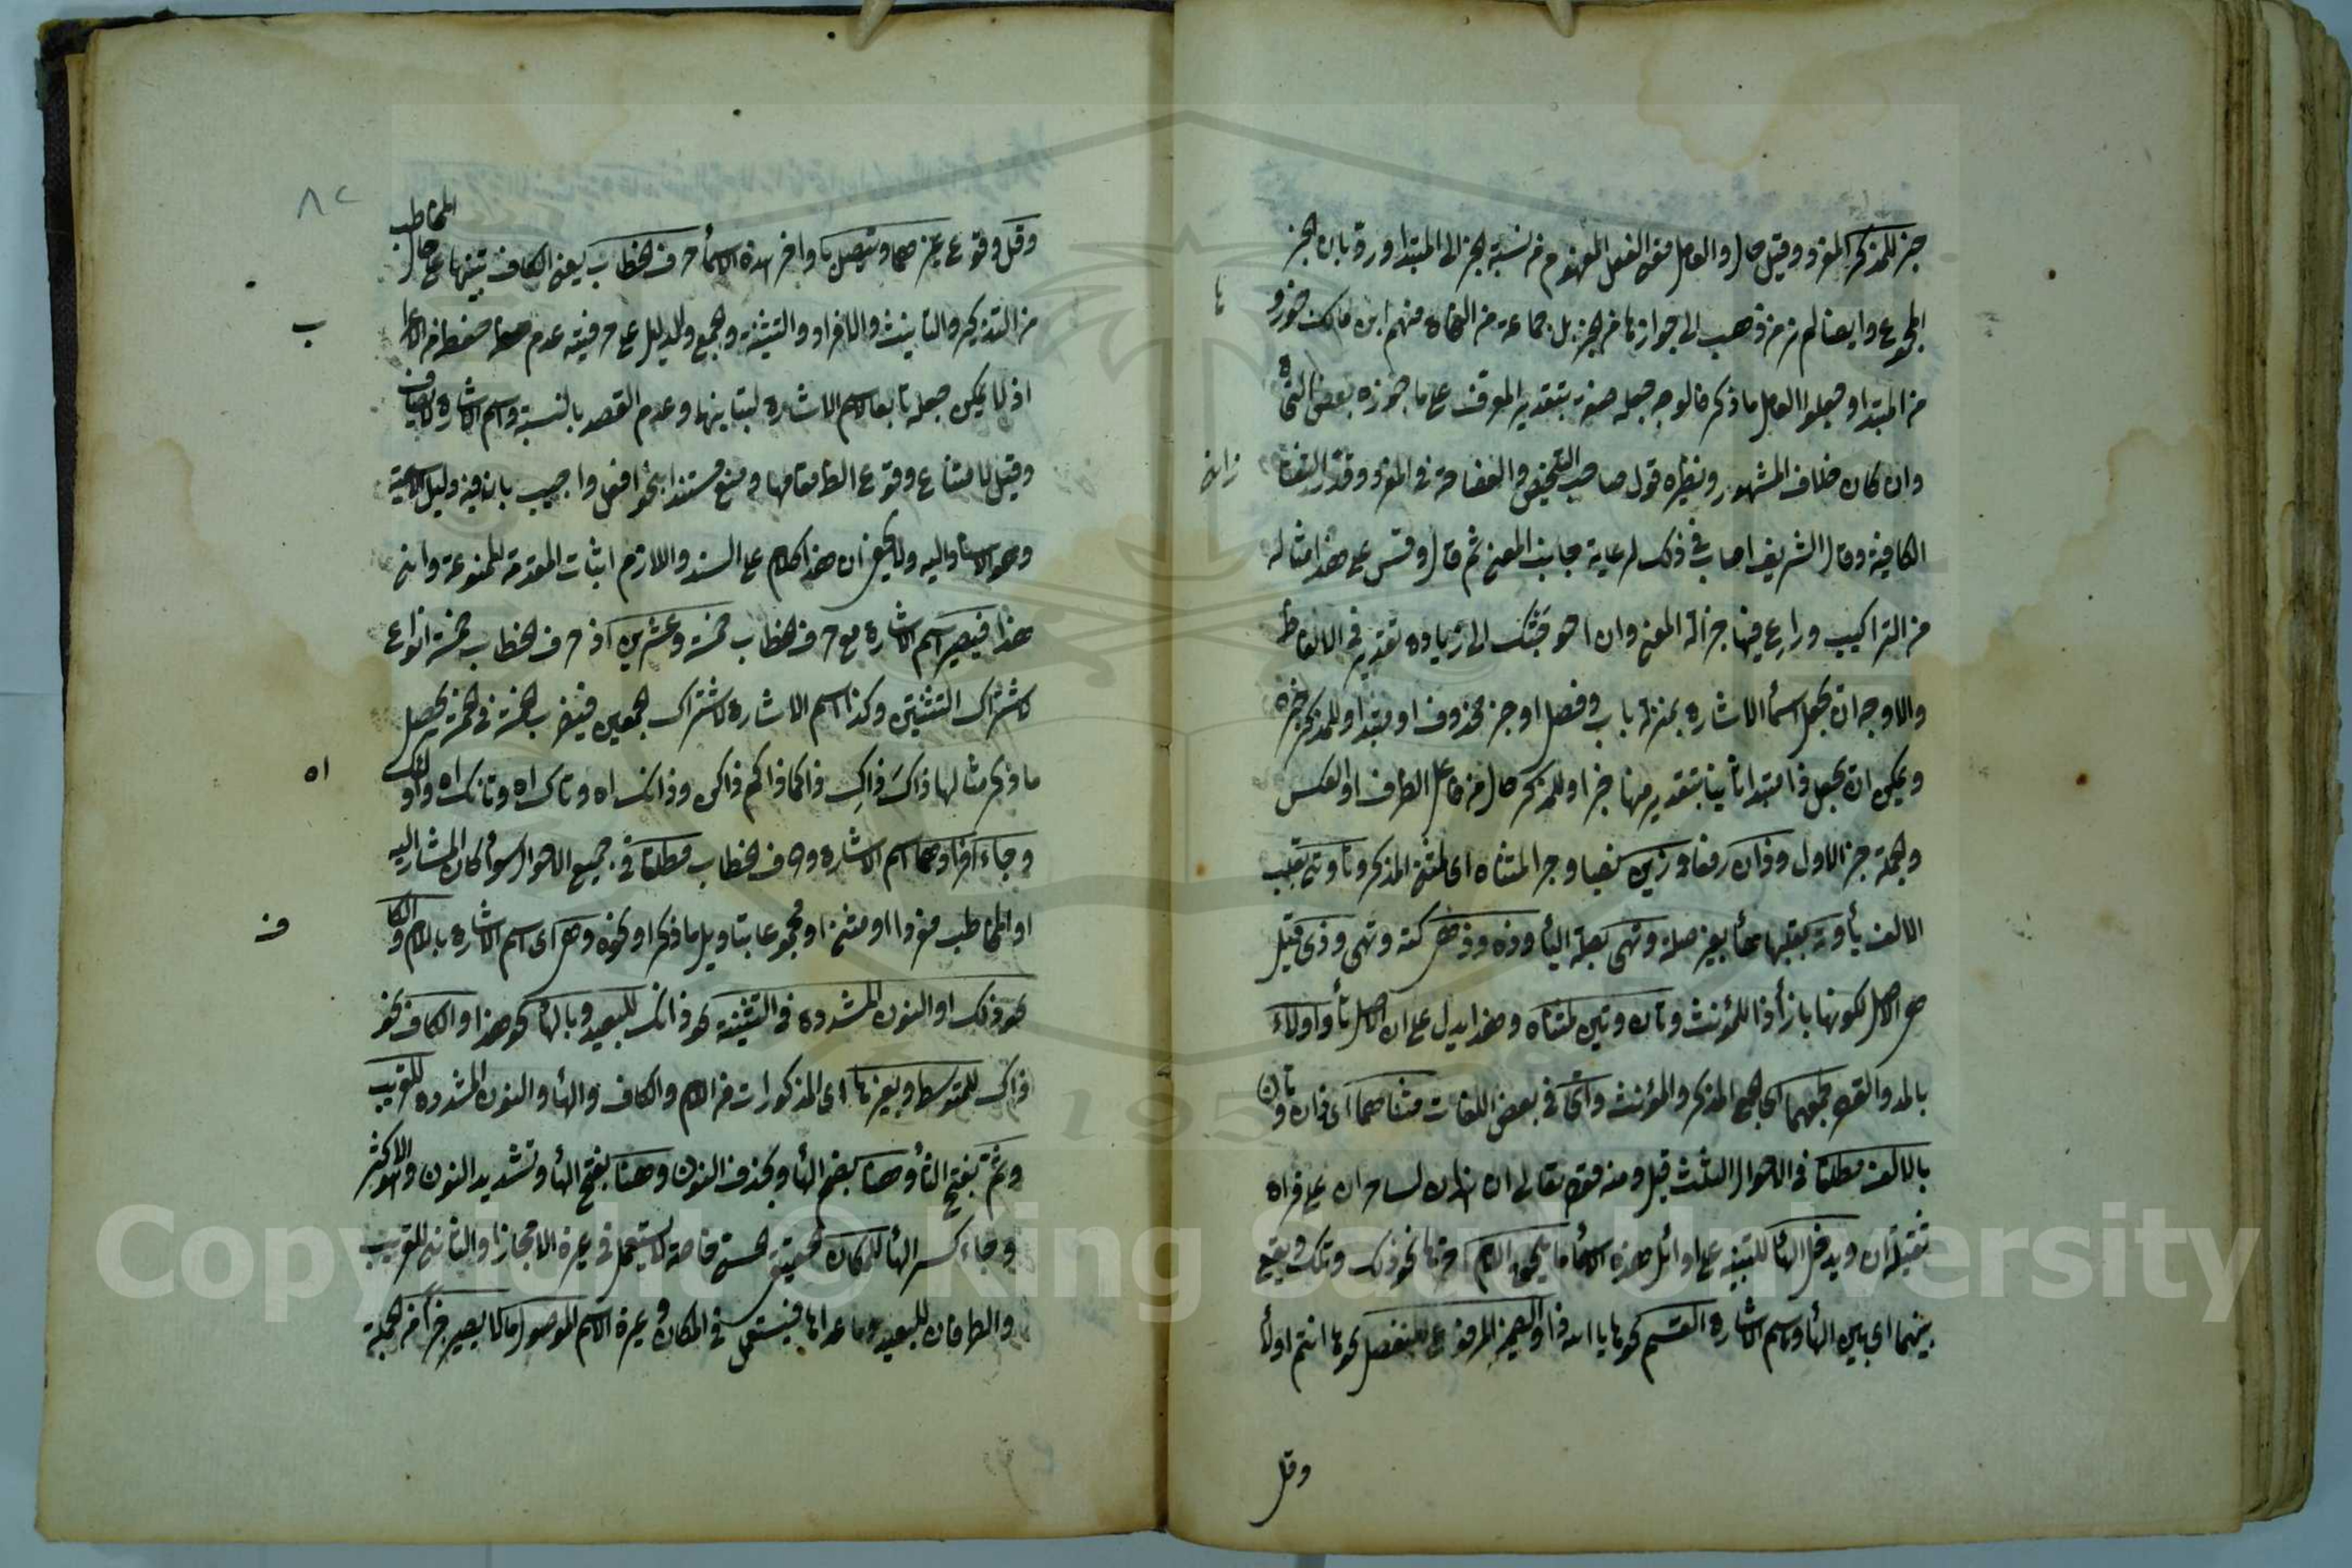 خبر للمذكر المفرد وقيل حال والعامل معنى الفعل المفهوم من نسبة الخبر الى المبتدا ورد بان الخبر
المجموع وايضا لم نر من ذهب الى جوازها من الخبر بل جماعة من النحاة منهم ابن مالك جوزو
ها
من المبتدا وجعلوا العامل ما ذكر فالوجه جعله صفة بتقدير المعرف على ما جوزه بعض النحاة
وان كان خلاف المشهور ونظيره قول صاحب التلخيص والفصاحة في المفرد وقدر التفتا
زانى
الكافية وقال الشريف اصاب في ذلك لرعاية جانب المعنى ثم قال وقس على هذا امثاله
من التراكيب وراع فيها جزالة المعنى وان احوجتك الى زيادة تقدير في الالفاظ
والاوجه ان يجعل اسماء الاشارة بمنزلة باب وفصل او خبر محذوف او مبتدا وللمذكر خبره
ويمكن ان يجعل ذا مبتدا ثانيا بتقدير منها خبرا وللمذكر حال من فاعل الظرف او العكس
والجملة خبر الاول وذان رفعا وذين نصبا وجرا لمثناه اى لمثنى المذكر وتا وتى بقلب
الالف ياء وته بقلبها هاء بغير صلة وتهى بصلة الياء وذه وذهى كته وتهى وذى قيل
هى الاصل لكونها بازاء ذا للمؤنث وتان وتين لمثناه وهذا يدل على ان الاصل تا واولاء
بالمد والقصر لجمعهما اى جمع المذكر والمؤنث وجاء في بعض اللغات مثناهما اى ذان وتان
بالالف مطلقا في الاحوال الثلث قيل ومنه قوله تعالى ان هذان لساحران على قراءة
تثقيل ان ويدخل الهاء للتنبيه على اوائل هذه الاسماء ما لم يلحق اللام آخرها نحو ذلك وتلك ويقع
بينهما اى بين الهاء واسم الاشارة القسم نحو ها يا الله ذا والضمير المرفوع المنفصل نحو ها انتم اولاء
وقل
٨٢
وقل وقوع غيرهما ويتصل باواخر هذه الاسماء حرف الخطاب يعنى الكاف تنبيها على حال المخاطب
من التذكير والتانيث والافراد والتثنية والجمع والدليل على حرفيته عدم حظه من الاعرا
ب
اذ لا يمكن جعله تابعا لاسم الاشارة لتباينهما وعدم القصد بالنسبة واسم الاشارة لا يضاف
وقيل لامتناع وقوع الظاهر مقامها ومنع مستندا بنحو افعل واجيب بان فيه دليل الاسمية
وهو الاسناد اليه ولا يخفى ان هذا كلام على السند واللازم اثبات المقدمة الممنوعة وانى
هذا فيصير اسم الاشارة مع حرف الخطاب خمسة وعشرين اذ حرف الخطاب خمسة انواع
لاشتراك التثنيتين وكذا اسم الاشارة لاشتراك الجمعين فيضرب الخمسة في الخمسة يحصل
ما ذكر مثالها ذاكَ ذاكِ ذاكما ذاكم ذاكن وذانك اه وتاك اه وتانك اه واولئك
اه
وجاء افراد هما اسم الاشارة وحرف الخطاب مطلقا في جميع الاحوال سواء كان المشار اليه
او المخاطب مفردا او مثنى او مجموعا بتاويل ما ذكر او نحوه وهى اى اسم الاشارة باللام والكا
ف
نحو ذلك او النون المشددة في التثنية نحو ذانك للبعيد وبالهاء نحو هذا والكاف نحو
ذاك للمتوسط وبغيرها اى المذكورات من اللام والكاف والهاء والنون المشددة للقريب
وثمّ بفتح الثاء وهنا بضم الهاء وبحذف النون وهنا بفتح الهاء وتشديد النون وهو الاكثر
وجاء كسر الهاء للمكان الحقيقى الحسى خاصة لا يستعمل في غيره الا مجازا والثانى للقريب
والطرفان للبعيد وما عداها فيستعمل في المكان وغيره الاسم الموصول ما لا يصير جزءا من الجملة